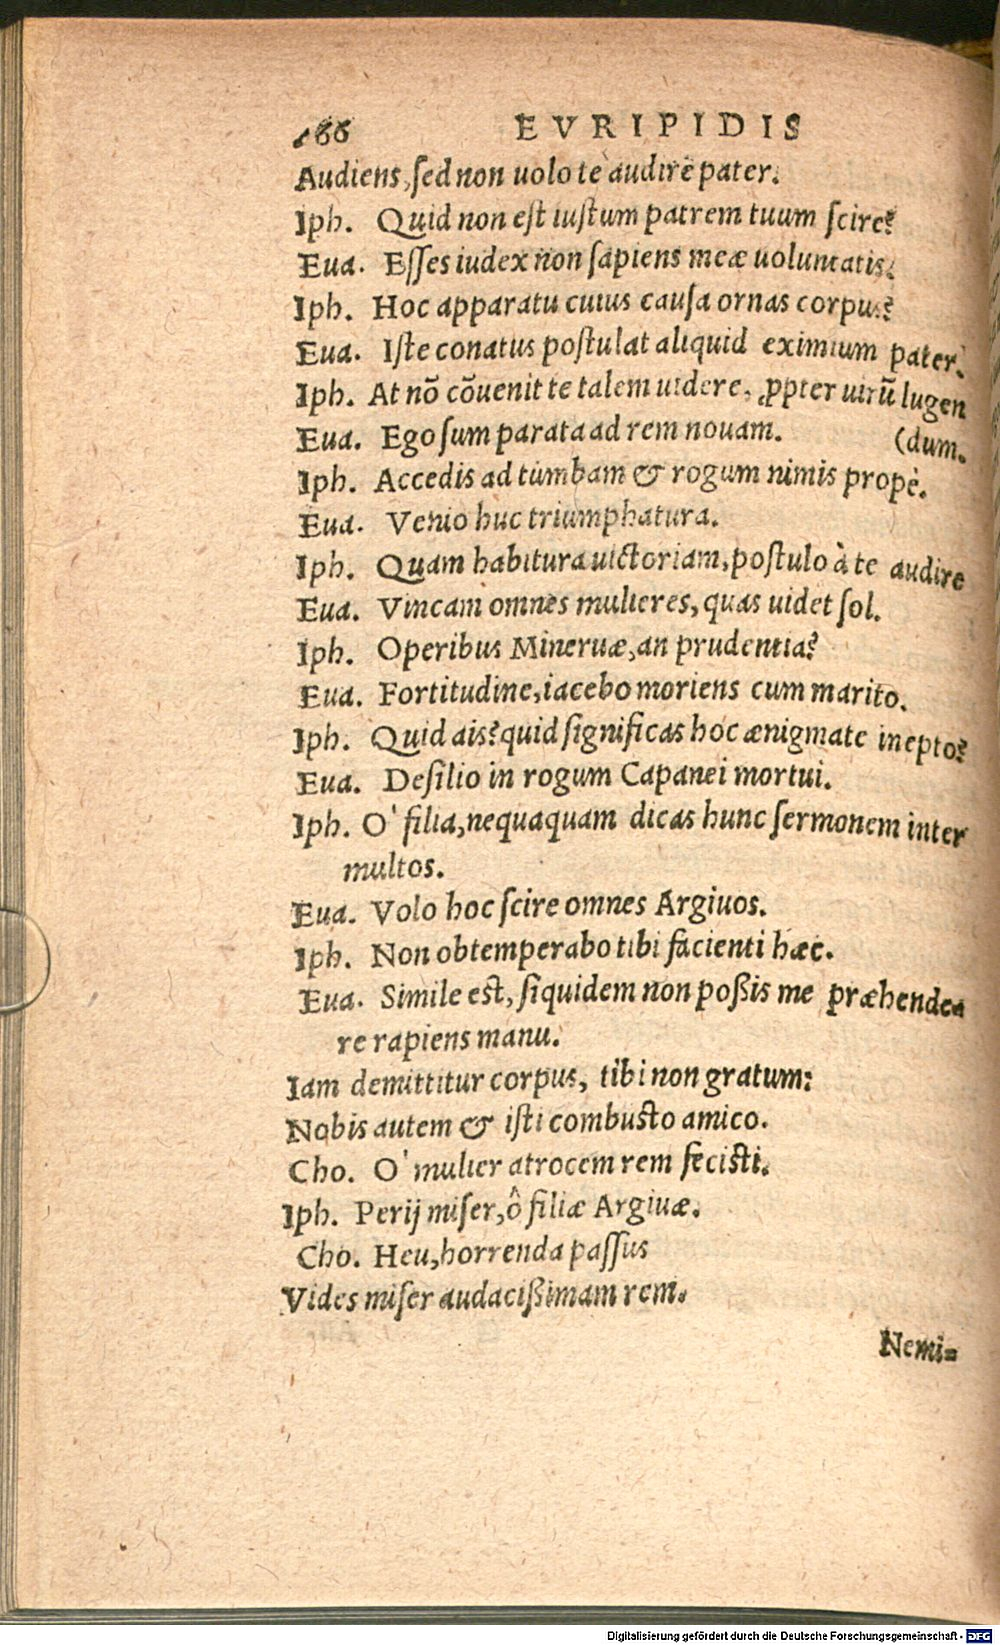 166 EVRIPIDIS
Audiens, sed non uolo te audire pater.
Iph. Quid non est iustum patrem tuum scire?
Eua. Esses iudex non sapiens meæ uoluntatis.
Iph. Hoc apparatu cuius causa ornas corpus?
Eua. Iste conatus postulat aliquid eximium pater.
Iph. At nō cōuenit te talem uidere, ꝓpter uirū lugen
Eua. Ego sum parata ad rem nouam. (dum.
Iph. Accedis ad tumbam & rogum nimis propè.
Eua. Venio huc triumphatura.
Iph. Quam habitura uictoriam, postulo à te audire
Eua. Vincam omnes mulieres, quas uidet sol.
Iph. Operibus Mineruæ, an prudentia?
Eua. Fortitudine, iacebo moriens cum marito.
Iph. Quid ais? quid significas hoc ænigmate inepto?
Eua. Desilio in rogum Capanei mortui.
Iph. O' filia, nequaquam dicas hunc sermonem inter
multos.
Eua. Volo hoc scire omnes Argiuos.
Iph. Non obtemperabo tibi facienti hæc.
Eua. Simile est, siquidem non poßis me præhende=
re rapiens manu.
Iam demittitur corpus, tibi non gratum:
Nobis autem & isti combusto amico.
Cho. O' mulier atrocem rem fecisti.
Iph. Perij miser, ô filiæ Argiuæ.
Cho. Heu, horrenda passus
Vides miser audacißimam rem.
Nemi=
Digitalisierung gefördert durch die Deutsche Forschungsgemeinschaft - DFG